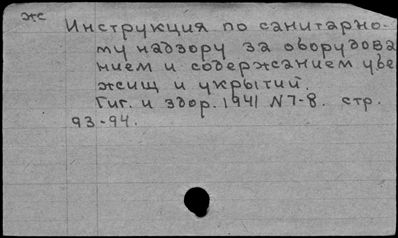 жс
Инструкция по санитарно-
му надзору за оборудова
нием и содержанием убе
жищ и укрытий.
Гиг. и здор. 1941 N7-8. стр.
93-94.